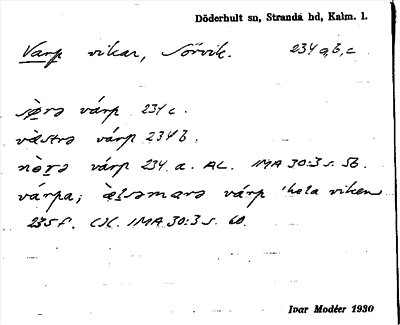 Döderhult sn, Stranda hd, Kalm. l.
Varp vikar, Sörvik. 234 a, b, c
sö̀rə várp 234 c.
væ̀strə várp 234 b.
nòrə várp 234 a. AL. IMA 30:3 s. 5B.
várpa; várp 'hala viken
235 f. IMA 30:3 s. 60.
Ivar Modéer 1930